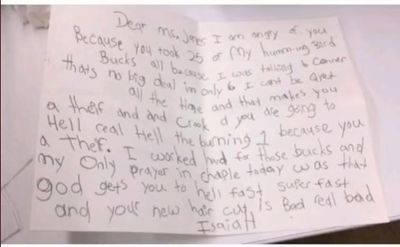 Dear Ms. Jones I am angry of you
Because you took 25 of My humming Bird
Bucks all because I was talking to Conner
thats no big deal im only 6 I cant be Qyet
all the time and that makes you
a theif and and Crook d you are going to
Hell real Hell the burning 1 because you
a thef. I worked hard for those bucks and
my Only prayer in chaple today was that
god gets you to hell fast super fast
and your new hair cut is Bad real bad
Isaiah